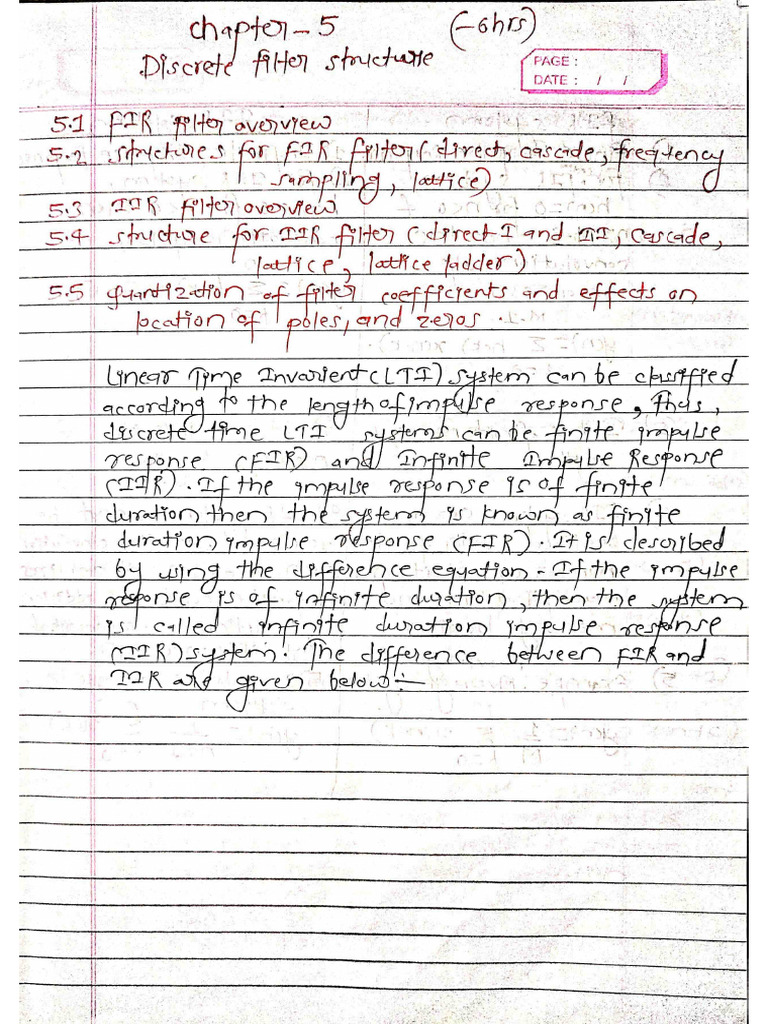 Chapter-5 (-6hrs)
Discrete filter structure
PAGE :
DATE : / /
5.1 FIR filter overview
5.2 structures for FIR filter (direct, cascade, frequency
sampling, lattice).
5.3 IIR filter overview
5.4 structure for IIR filter (direct I and II, cascade,
lattice, lattice ladder)
5.5 quantization of filter coefficients and effects on
location of poles, and zeros.
Linear Time Invarient (LTI) system can be classified
according to the length of impulse response, Thus,
discrete time LTI systems can be finite impulse
response (FIR) and Infinite Impulse Response
(IIR). If the impulse response is of finite
duration then the system is known as finite
duration impulse response (FIR). It is described
by using the difference equation - If the impulse
response is of infinite duration, then the system
is called infinite duration impulse response
(IIR) system. The difference between FIR and
IIR are given below:-